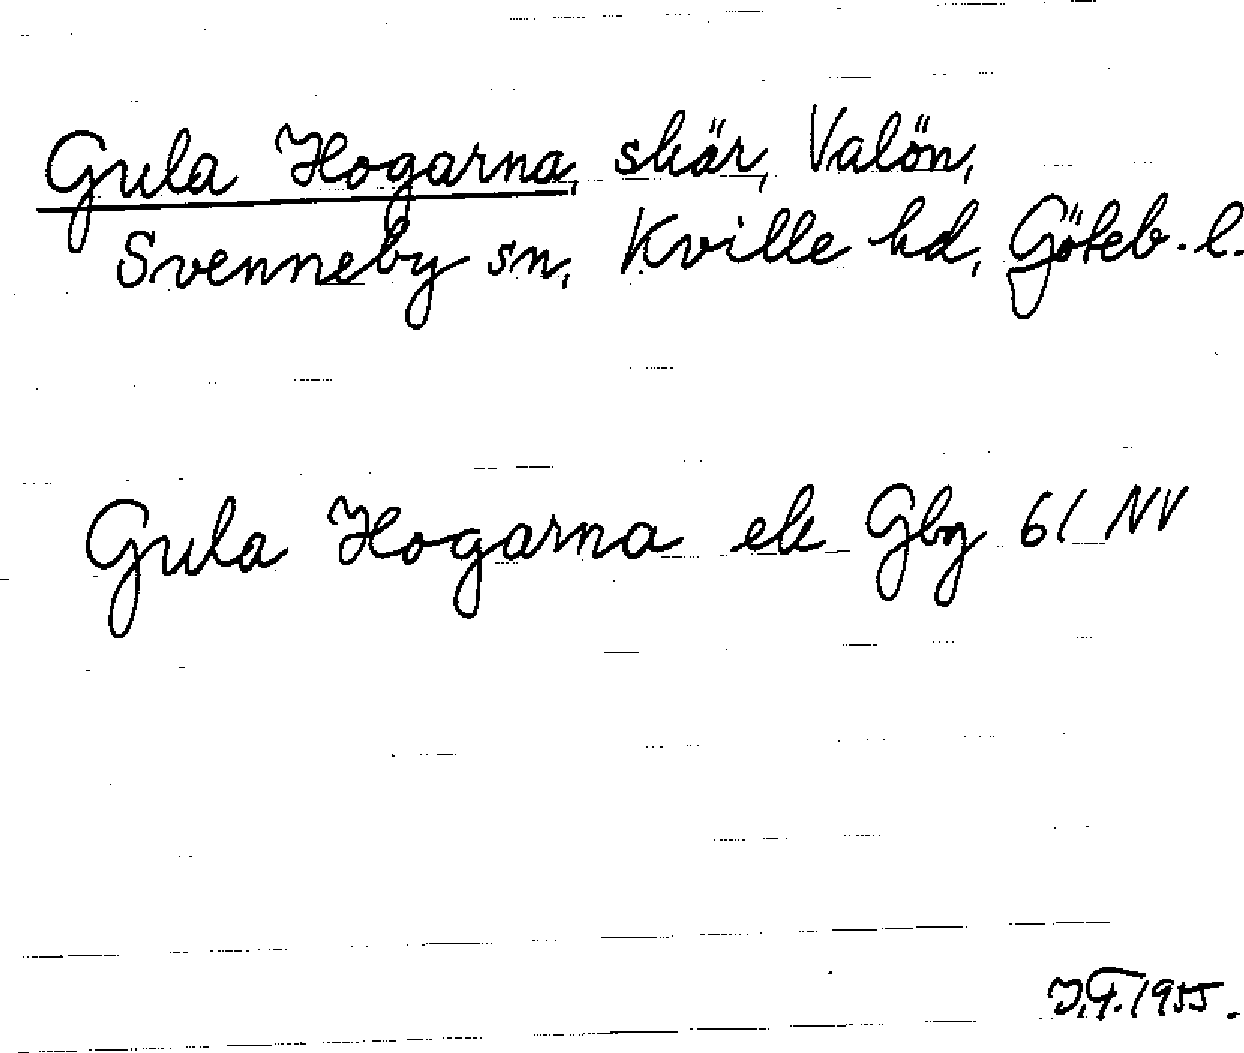 Gula Hogarna, skär, Valön,
Svenneby sn, Kville hd, Göteb. l.
Gula Hogarna ek Gbg 61 NV
J.F. 1955.